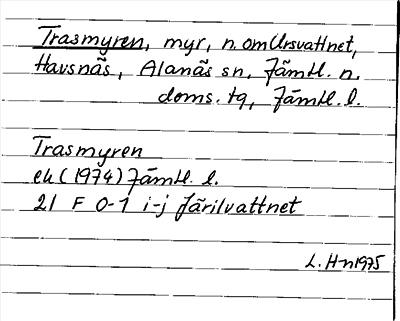 Trasmyren, myr, n. om Ursvattnet,
Havsnäs, Alanäs sn, Jämtl. n.
doms. tg, Jämtl. l.
Trasmyren
ek (1974) Jämtl. l.
21 F 0-1 i-j Järilvattnet
L. H-n 1975